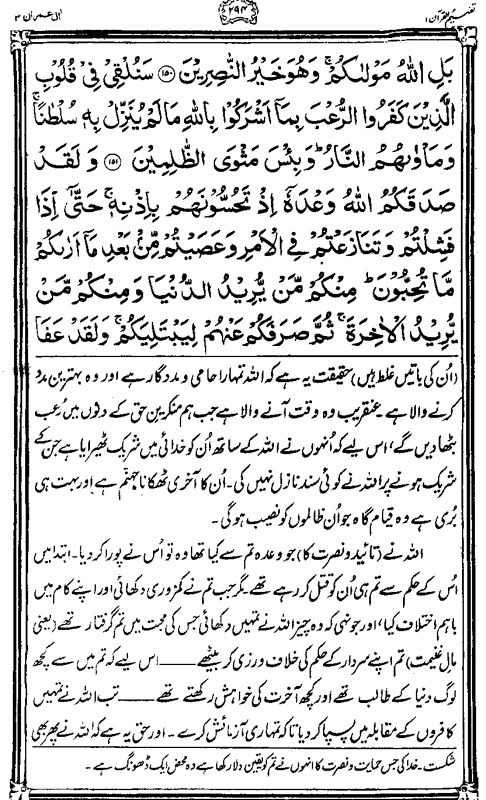 تفہیم القرآن ۱
۲۹۴
آل عمران ۳
بَلِ اللّٰهُ مَوْلٰىكُمْ ۚ وَهُوَ خَيْرُ النّٰصِرِيْنَ ﴿۱۵۰﴾ سَنُلْقِيْ فِيْ قُلُوْبِ
الَّذِيْنَ كَفَرُوا الرُّعْبَ بِمَاۤ اَشْرَكُوْا بِاللّٰهِ مَا لَمْ يُنَزِّلْ بِهٖ سُلْطٰنًا ۚ
وَمَاْوٰىهُمُ النَّارُ ؕ وَبِئْسَ مَثْوَى الظّٰلِمِيْنَ ﴿۱۵۱﴾ وَلَقَدْ
صَدَقَكُمُ اللّٰهُ وَعْدَهٗۤ اِذْ تَحُسُّوْنَهُمْ بِاِذْنِهٖ ۚ حَتّٰۤى اِذَا
فَشِلْتُمْ وَتَنَازَعْتُمْ فِي الْاَمْرِ وَعَصَيْتُمْ مِّنْۢ بَعْدِ مَاۤ اَرٰىكُمْ
مَّا تُحِبُّوْنَ ؕ مِنْكُمْ مَّنْ يُّرِيْدُ الدُّنْيَا وَمِنْكُمْ مَّنْ
يُّرِيْدُ الْاٰخِرَةَ ۚ ثُمَّ صَرَفَكُمْ عَنْهُمْ لِيَبْتَلِيَكُمْ ۚ وَلَقَدْ عَفَا
(اُن کی باتیں غلط ہیں) حقیقت یہ ہے کہ اللہ تمہارا حامی و مددگار ہے اور وہ بہترین مدد
کرنے والا ہے۔ عنقریب وہ وقت آنے والا ہے جب ہم منکرینِ حق کے دلوں میں رُعب
بٹھا دیں گے، اس لیے کہ اُنہوں نے اللہ کے ساتھ اُن کو خدائی میں شریک ٹھیرایا ہے جن کے
شریک ہونے پر اللہ نے کوئی سند نازل نہیں کی۔ اُن کا آخری ٹھکانا جہنّم ہے اور بہت ہی
بُری ہے وہ قیام گاہ جو اُن ظالموں کو نصیب ہوگی۔
اللہ نے (تائید و نصرت کا) جو وعدہ تم سے کیا تھا وہ تو اُس نے پورا کر دیا۔ ابتدا میں
اُس کے حکم سے تم ہی اُن کو قتل کر رہے تھے۔ مگر جب تم نے کمزوری دکھائی اور اپنے کام میں
باہم اختلاف کیا، اور جونہی کہ وہ چیز اللہ نے تمہیں دکھائی جس کی محبت میں تم گرفتار تھے (یعنی
مالِ غنیمت) تم اپنے سردار کے حکم کی خلاف ورزی کر بیٹھے ـــــــ اس لیے کہ تم میں سے کچھ
لوگ دنیا کے طالب تھے اور کچھ آخرت کی خواہش رکھتے تھے ـــــــ تب اللہ نے تمہیں
کافروں کے مقابلہ میں پسپا کر دیا تاکہ تمہاری آزمائش کرے۔ اور حق یہ ہے کہ اللہ نے پھر بھی
شکست۔ خدا کی جس حمایت و نصرت کا انہوں نے تم کو یقین دلا رکھا ہے وہ محض ایک ڈھونگ ہے۔